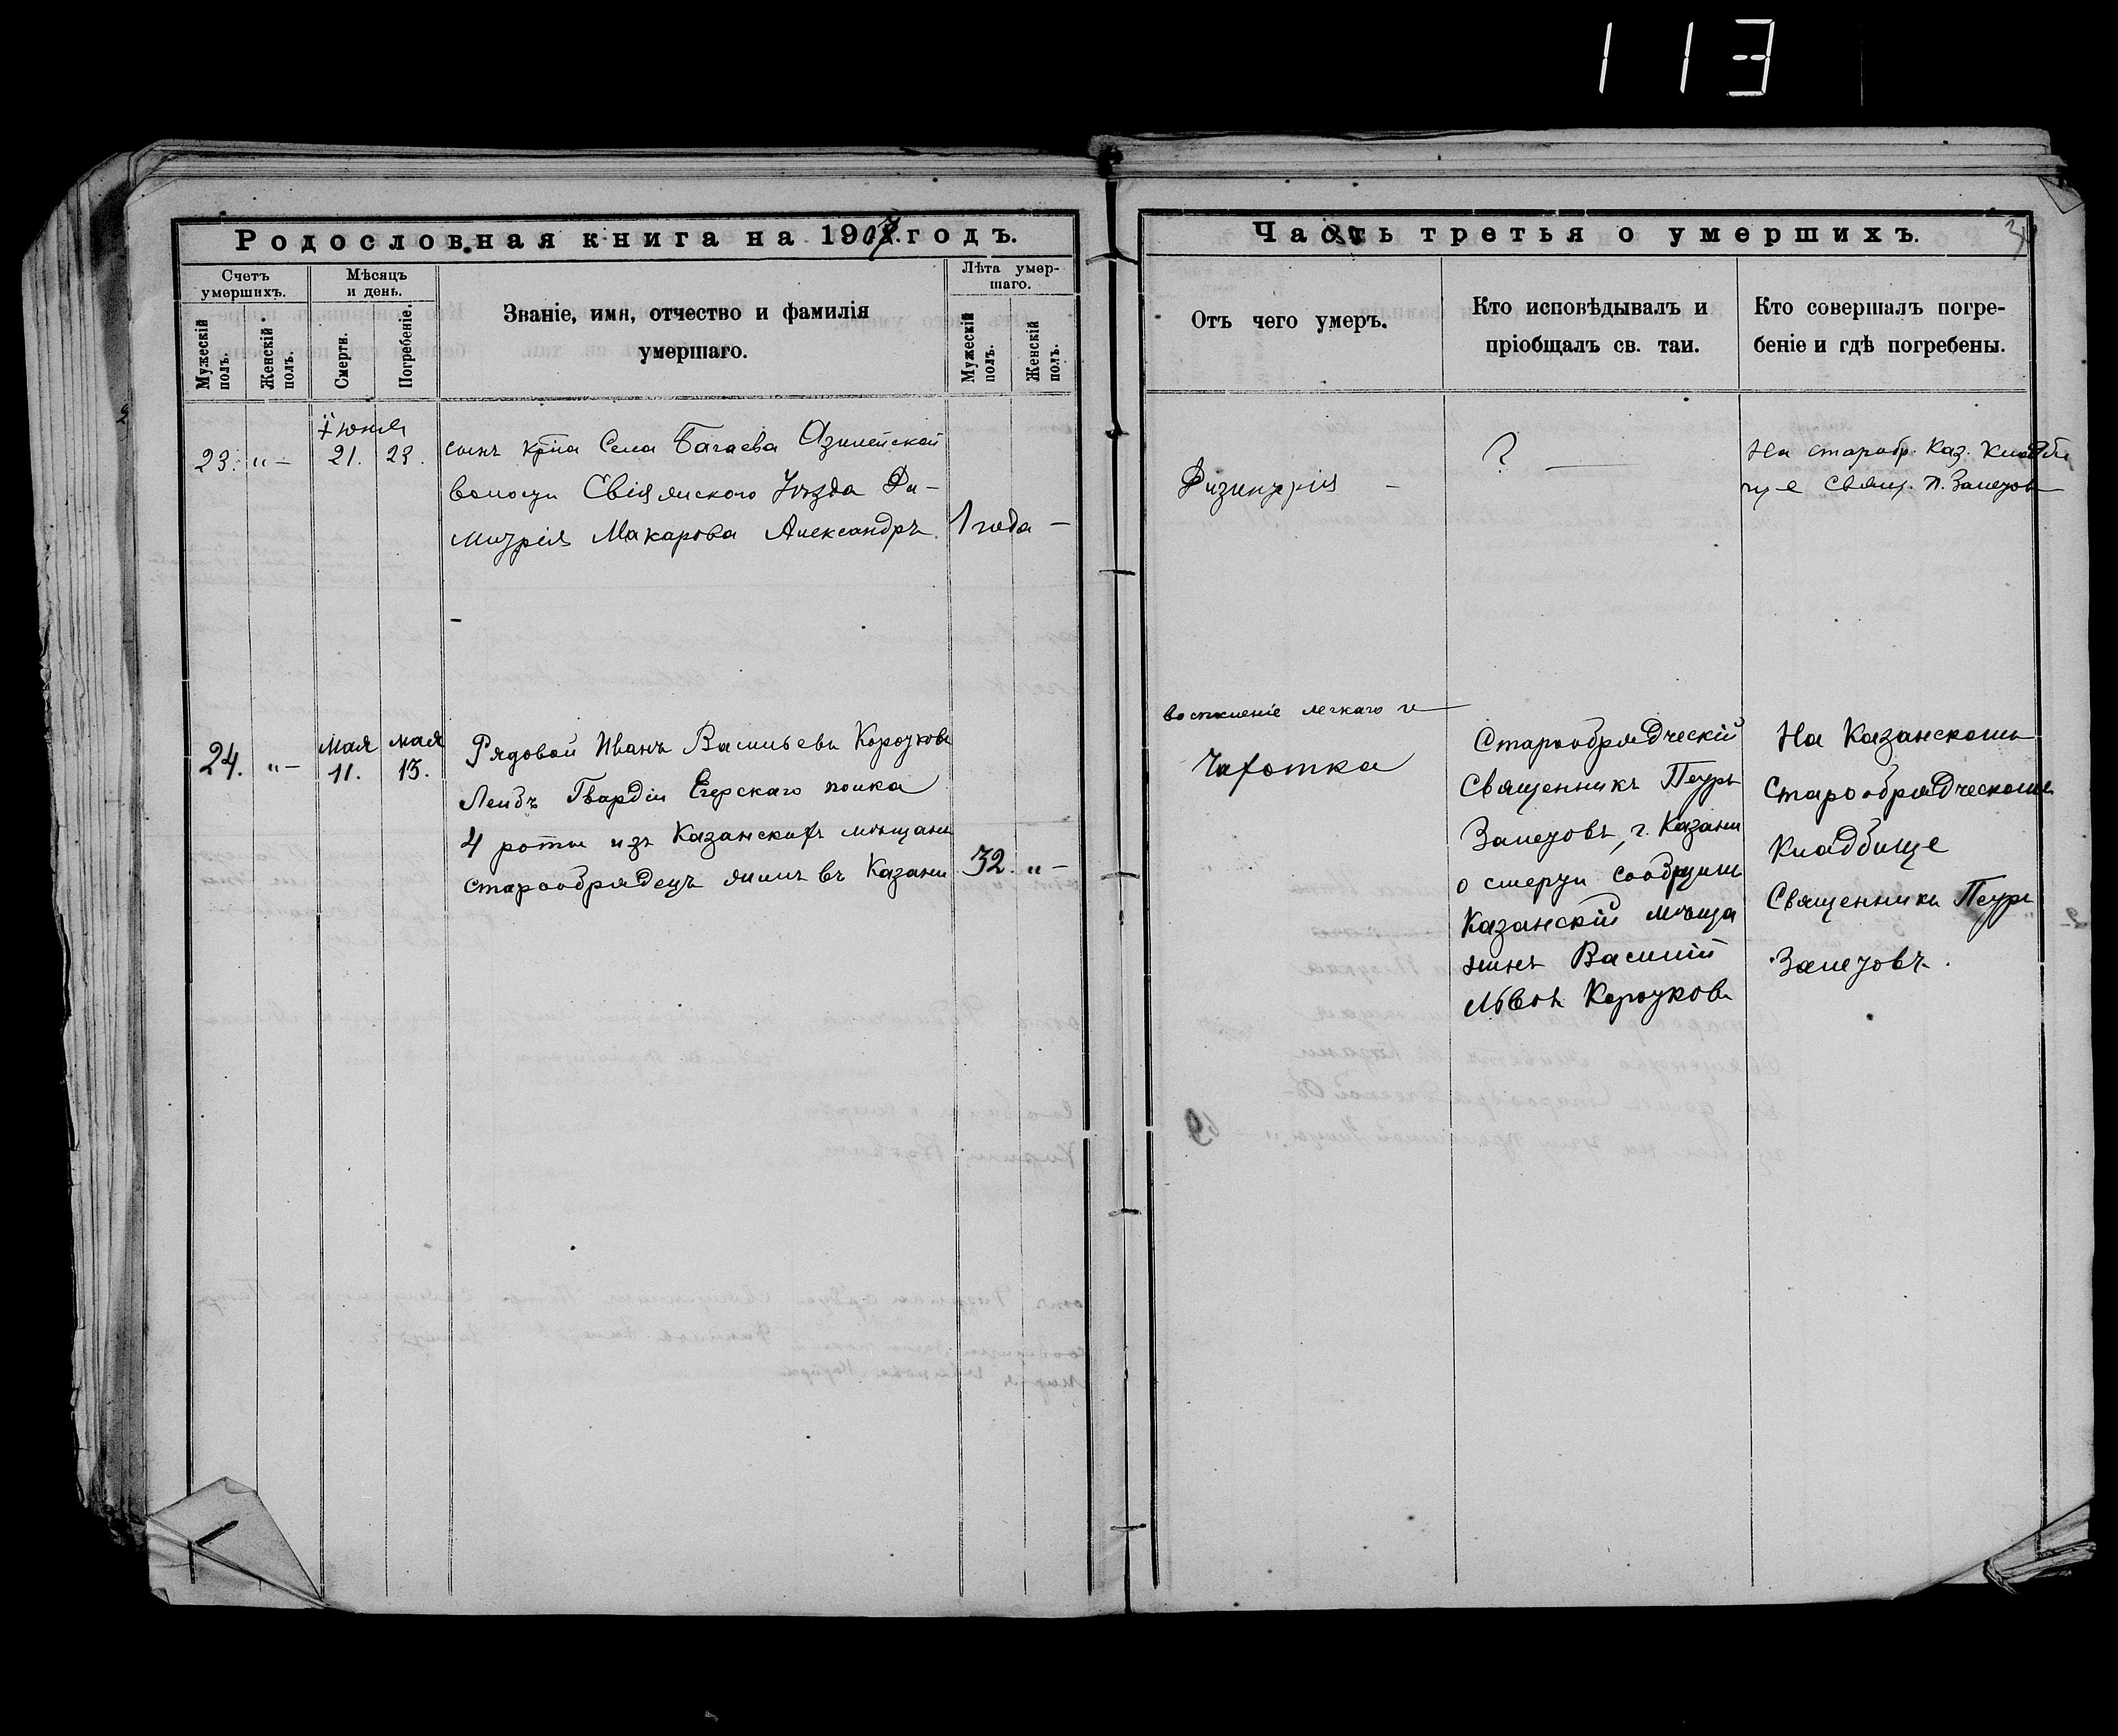 113
Родословная книга на 1907 годъ.
Счетъ умершихъ.
Мѣсяцъ и день.
Званіе, имя, отчество и фамилія
умершаго.
Лѣта умер-
шаго.
Мужескій полъ.
Женскій полъ.
Смерти.
Погребеніе.
Мужескій полъ.
Женскій полъ.
Іюня
23. „ — 21. 23.
сынъ крна Села Багаева Азилейской
волости Свіяжскаго Уѣзда Ди-
митрія Макарова Александръ. 1 года —
24. „ — Мая 11. мая 13.
Рядовой Иванъ Васильевъ Коротковъ
Лейбъ Гвардіи Егерскаго полка
4 роты изъ Казанскихъ мѣщанъ
старообрядецъ жилъ въ Казани 32. „ —
Часть третья о умершихъ.
Отъ чего умеръ.
Кто исповѣдывалъ и
пріобщалъ св. таи.
Кто совершалъ погре-
беніе и гдѣ погребены.
Дизинтрія —
? —
На старобр. Каз. Кладби
щѣ Свящ. П. Залетов
воспаленіе легкаго и
Чахотка
Старообрядческій
Священникъ Петръ
Залетовъ, г. Казани
о смерти сообщилъ
Казанскій мѣща
нинъ Василій
Львов Коротковъ
На Казанскомъ
Старообрядческомъ
Кладбище
Священникъ Петръ
Залетовъ.